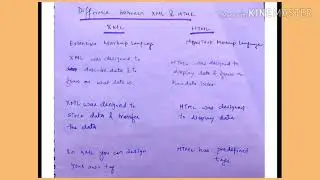 Made with KINEMASTER
Difference between XML & HTML
XML
HTML
Extensive Markup Language
HyperText Markup Language
XML was designed to
describe data & to
focus on what data is.
HTML was designed to
display data & focus on
how data looks
XML was designed to
store data & transfer
the data
HTML was designed
to display data.
In XML you can design
your own tag
HTML has predefined
tags